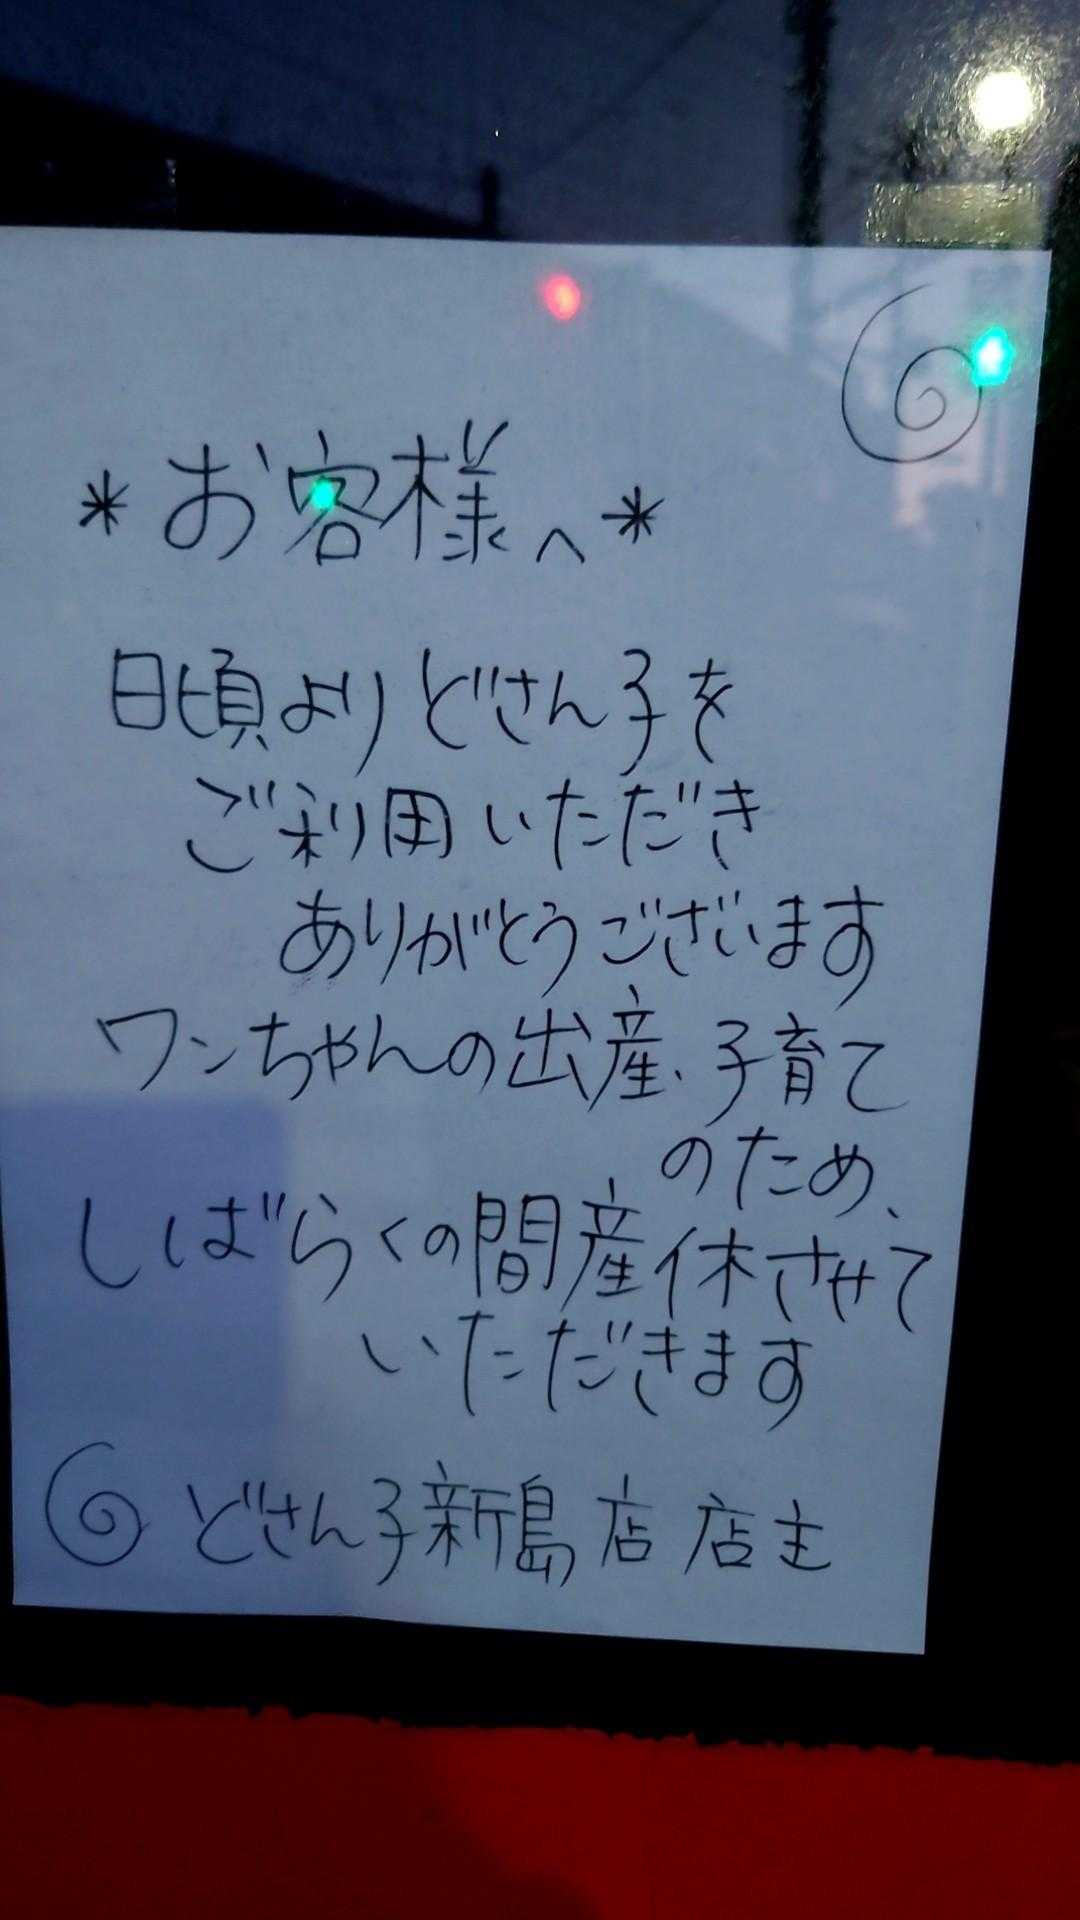 *お客様へ*
日頃よりどさん子を
ご利用いただき
ありがとうございます
ワンちゃんの出産、子育て
のため、
しばらくの間産休させて
いただきます
どさん子新島店 店主